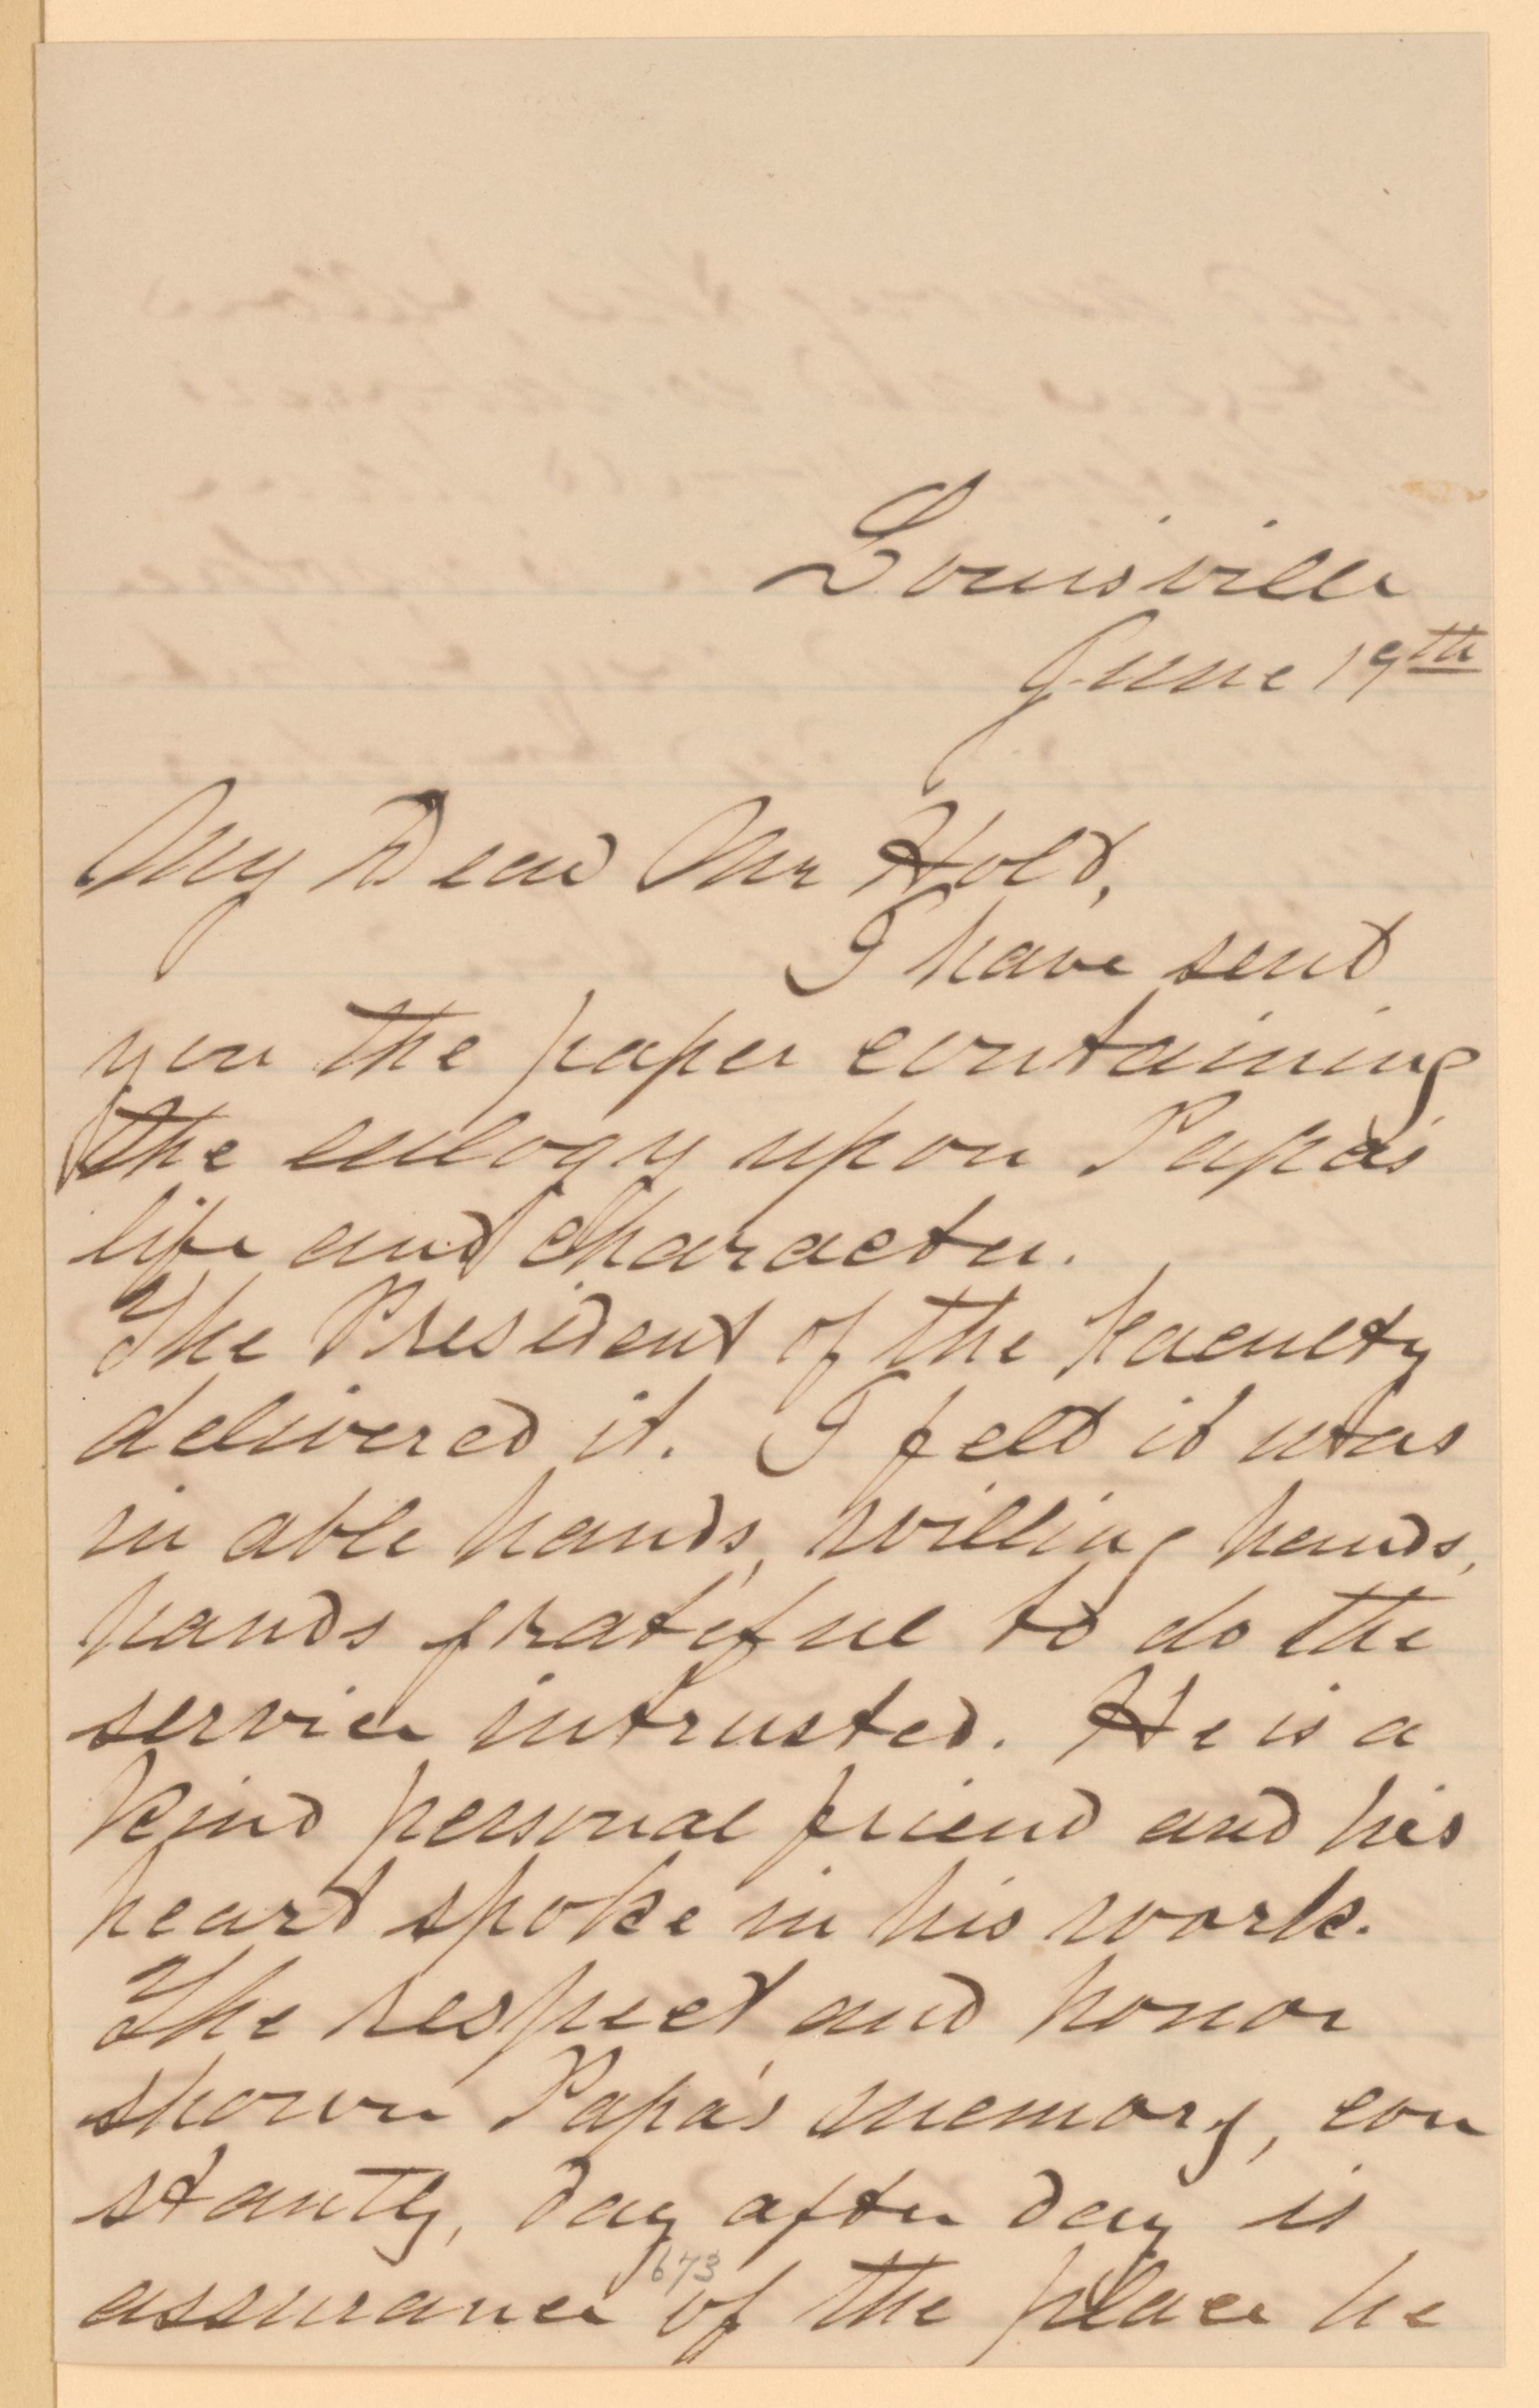 Louisville
June 19th
My Dear Mr Holt,
I have sent
you the paper containing
the eulogy upon Papa's
life and character.
The President of the Faculty
delivered it. I felt it was
in able hands, willing hands,
hands grateful to do the
service intrusted. He is a
kind personal friend and his
heart spoke in his work.
The respect and honor
shown Papa's memory, con
stantly, day after day is
673
assurance of the place he